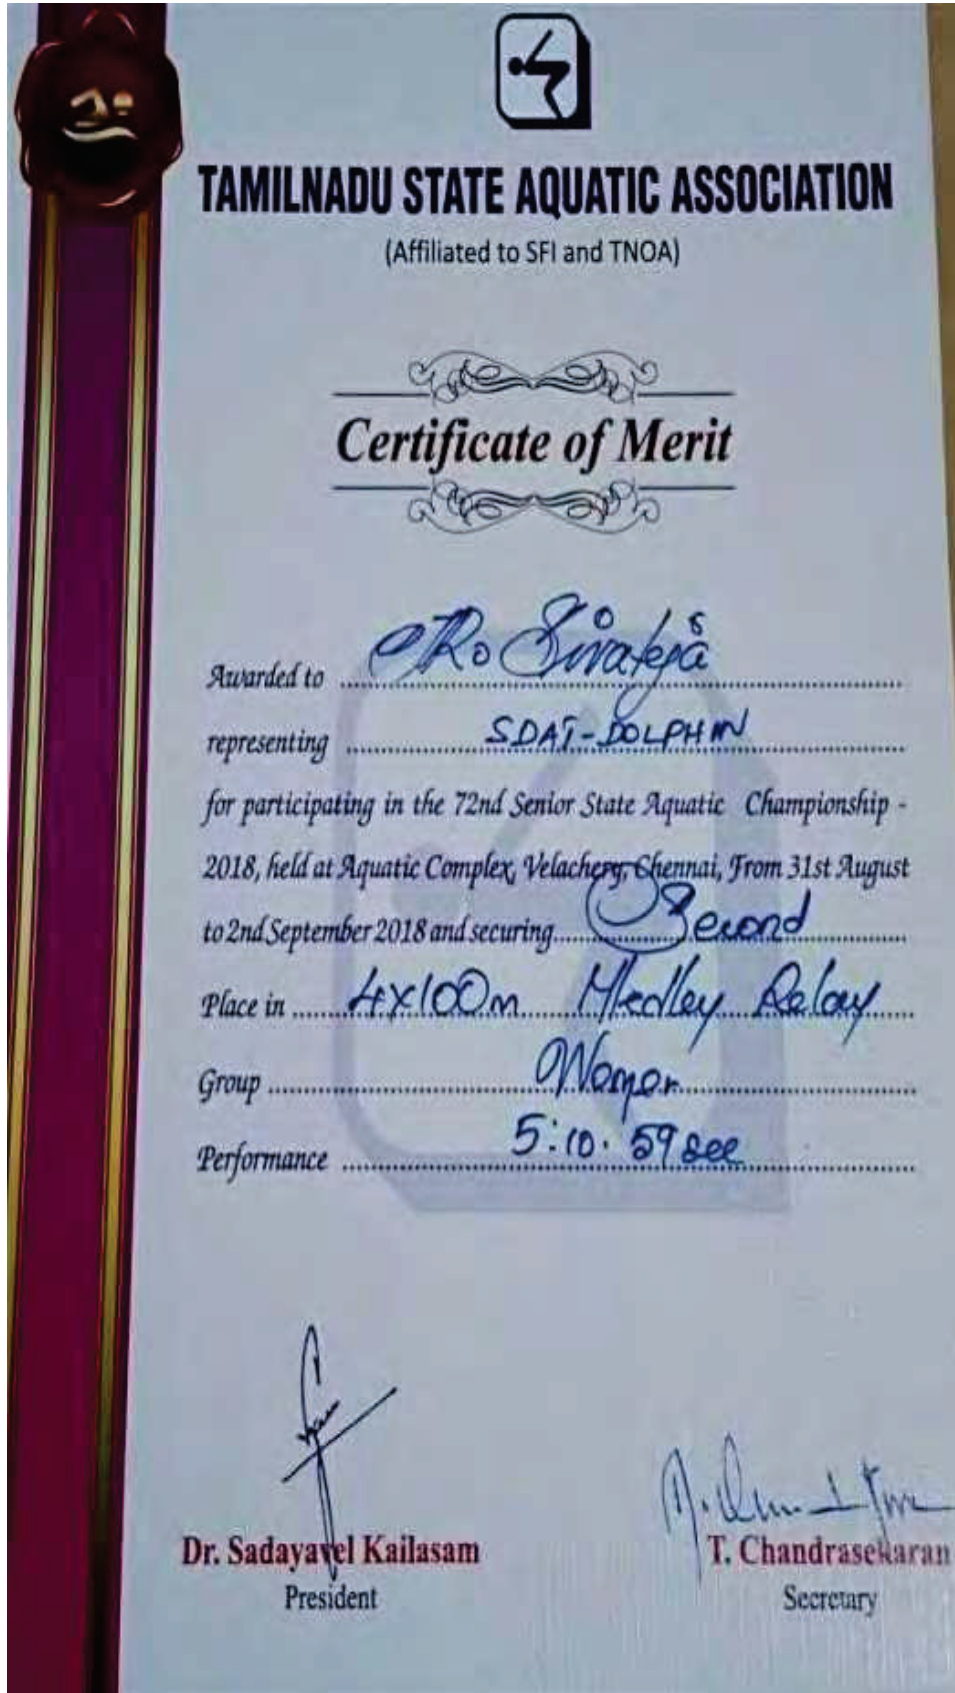 TAMILNADU STATE AQUATIC ASSOCIATION
(Affiliated to SFI and TNOA)
Certificate of Merit
Awarded to
representing SDAT-DOLPHIN
for participating in the 72nd Senior State Aquatic Championship -
2018, held at Aquatic Complex, Velachery, Chennai, From 31st August
to 2nd September 2018 and securing Second
Place in 4x100m Medley Relay
Group Women
Performance 5:10.59 sec
Dr. Sadayavel Kailasam
T. Chandrasekaran
President
Secretary